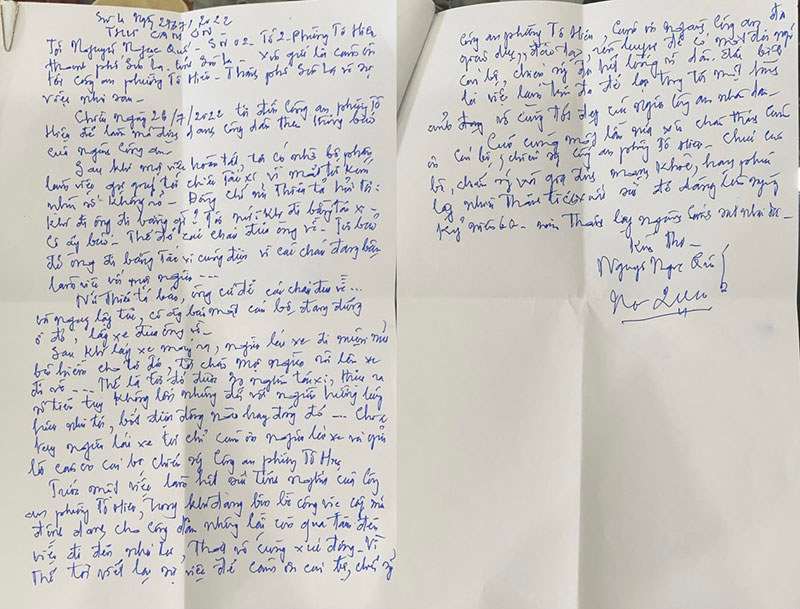 Sơn La Ngày 27/7/2022
THƯ CẢM ƠN
Tôi Nguyễn Ngọc Quê - SN 02 - Tổ 2 - Phường Tô Hiệu
thành phố Sơn La - tỉnh Sơn La - Xin gửi lời cảm ơn
tới công an phường Tô Hiệu - Thành phố Sơn La về sự
việc như sau -
Chiều ngày 26/7/2022 tôi đến Công an phường Tô
Hiệu để làm mã định danh công dân theo thông báo
của ngành công an -
Sau khi mọi việc hoàn tất, tôi có nhờ bộ phận
làm việc gọi giúp tôi chiếc Taxi vì mắt tôi kém
nhìn số không rõ - Đồng chí nữ Thiếu tá hỏi tôi:
Khi đi ông đi bằng gì? Tôi nói: Khi đi bằng taxi -
Cô ấy bảo - Thế để các cháu đưa ông về - Tôi bảo
để ông đi bằng Taxi cũng được vì các cháu đang bận
làm việc với mọi người ---
Nữ thiếu tá bảo, ông cứ để các cháu đưa về...
và ngay lập tức, cô ấy bảo một cán bộ đang đứng
ở đó, lấy xe đưa ông về -
Sau khi lấy xe máy ra, người lái xe đi mượn mũ
bảo hiểm cho tôi đội, tôi chào mọi người rồi lên xe
đi về --- Thế là tôi đỡ được 30 nghìn taxi,
số tiền tuy không lớn nhưng đối với người hưởng lương
hưu như tôi, bớt được đồng nào hay đồng đó ... Chia
tay người lái xe tôi chỉ cảm ơn người lái xe và gửi
lời cảm ơn cán bộ chiến sỹ Công an phường Tô Hiệu
Trước một việc làm hết sức tình nghĩa của Công
an phường Tô Hiệu, trong khi đang bận bề công việc cấp mã
định danh cho công dân nhưng lại còn quan tâm đến
việc đi đến như tôi, Thật vô cùng xúc động - Vì
Thế tôi viết lại sự việc để cảm ơn cán bộ, chiến sỹ
công an phường Tô Hiệu, Cảm ơn ngành Công an đã
giáo dục, đào tạo, rèn luyện để có một đội ngũ
cán bộ, chiến sỹ đã hết lòng vì dân. Đặc biệt
là việc làm trên đã để lại trong tôi một hình
ảnh vô cùng tốt đẹp của người Công an nhân dân -
Cuối cùng một lần nữa xin chân thành cảm
ơn cán bộ, chiến sỹ công an phường Tô Hiệu - Chúc cán
bộ, chiến sỹ và gia đình mạnh khỏe, hạnh phúc
Kính thư -
Nguyễn Ngọc Quê